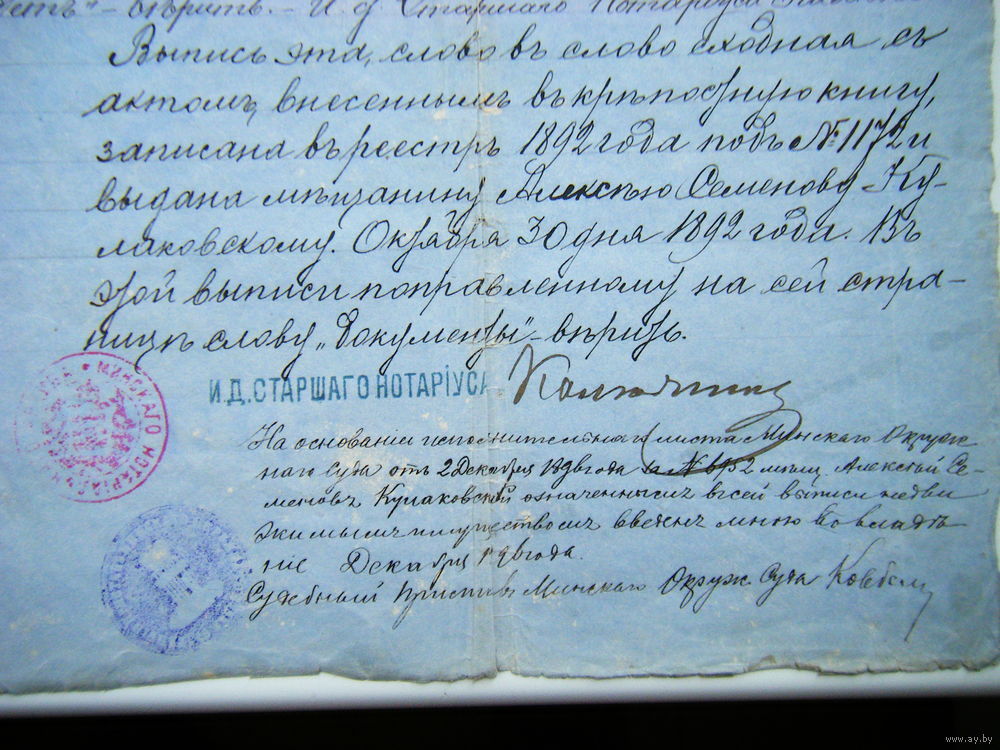 вѣрить. - И. д. Старшаго Нотаріуса
Выпись эта, слово въ слово сходная съ
актомъ, внесеннымъ въ крѣпостную книгу,
записана въ реестръ 1892 года подъ № 1172 и
выдана мѣщанину Алексѣю Семенову Ку-
лаковскому. Октября 30 дня 1892 года. Въ
этой выписи поправленному на сей стра-
ницѣ слову „документы" - вѣрить.
И.Д. СТАРШАГО НОТАРІУСА
МИНСКАГО НОТАРІАЛЬНАГО
На основаніи исполнительнаго листа Минскаго Окруж-
наго Суда отъ 2 Декабря года за № мѣщ. Алексѣй Се-
меновъ Кулаковскій означеннымъ въ сей выписи недви
жимымъ имуществомъ введенъ мною во владѣ-
ніе Декабря года.
Судебный Приставъ Минскаго Окруж. Суда
www.ay.by